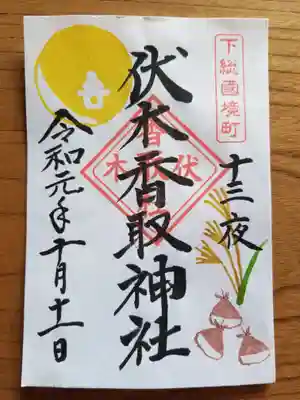 下総國境町
十三夜
伏木香取神社
伏木
香
令和元年十月十一日